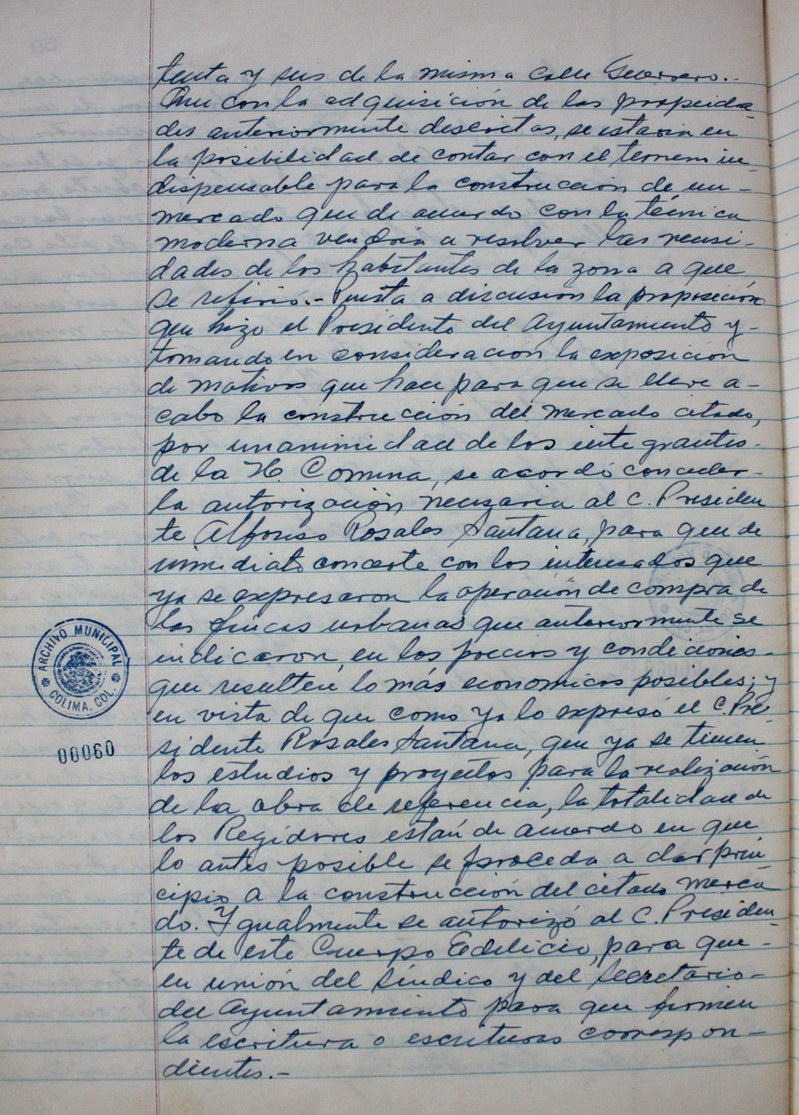 tenta y seis de la misma calle Guerrero.-
Que con la adquisición de las propieda-
des anteriormente descritas, se estaria en
la posibilidad de contar con el terreno in-
dispensable para la construcción de un-
mercado que de acuerdo con la técnica
moderna vendria a resolver las necesi-
dades de los habitantes de la zona a que
se refirió.- Puesta a discusion la proposición
que hizo el Presidente del Ayuntamiento y-
tomando en consideracion la exposición
de motivos que hace para que se lleve a-
cabo la construcción del mercado citado,
por unanimidad de los integrantes-
de la H. Comuna, se acordó conceder-
la autorización necesaria al C. Presiden
te Alfonso Rosales Santana, para que de
inmediato concerte con los interesados que
ya se expresaron la operación de compra de
las fincas urbanas que anteriormente se
indicaron, en los precios y condiciones-
que resulten lo más economicos posibles; y
en vista de que como ya lo expresó el C. Pre-
sidente Rosales Santana, que ya se tienen
los estudios y proyectos para la realización
de la obra de referencia, la totalidad de
los Regidores están de acuerdo en que
lo antes posible se proceda a dar prin
cipio a la construcción del citado merca
do. Igualmente se autorizó al C. Presiden-
te de este Cuerpo Edelicio, para que-
en unión del Síndico y del Secretario-
del Ayuntamiento para que firmen
la escritura o escrituras correspon-
dientes.-
ARCHIVO MUNICIPAL
COLIMA, COL.
00060